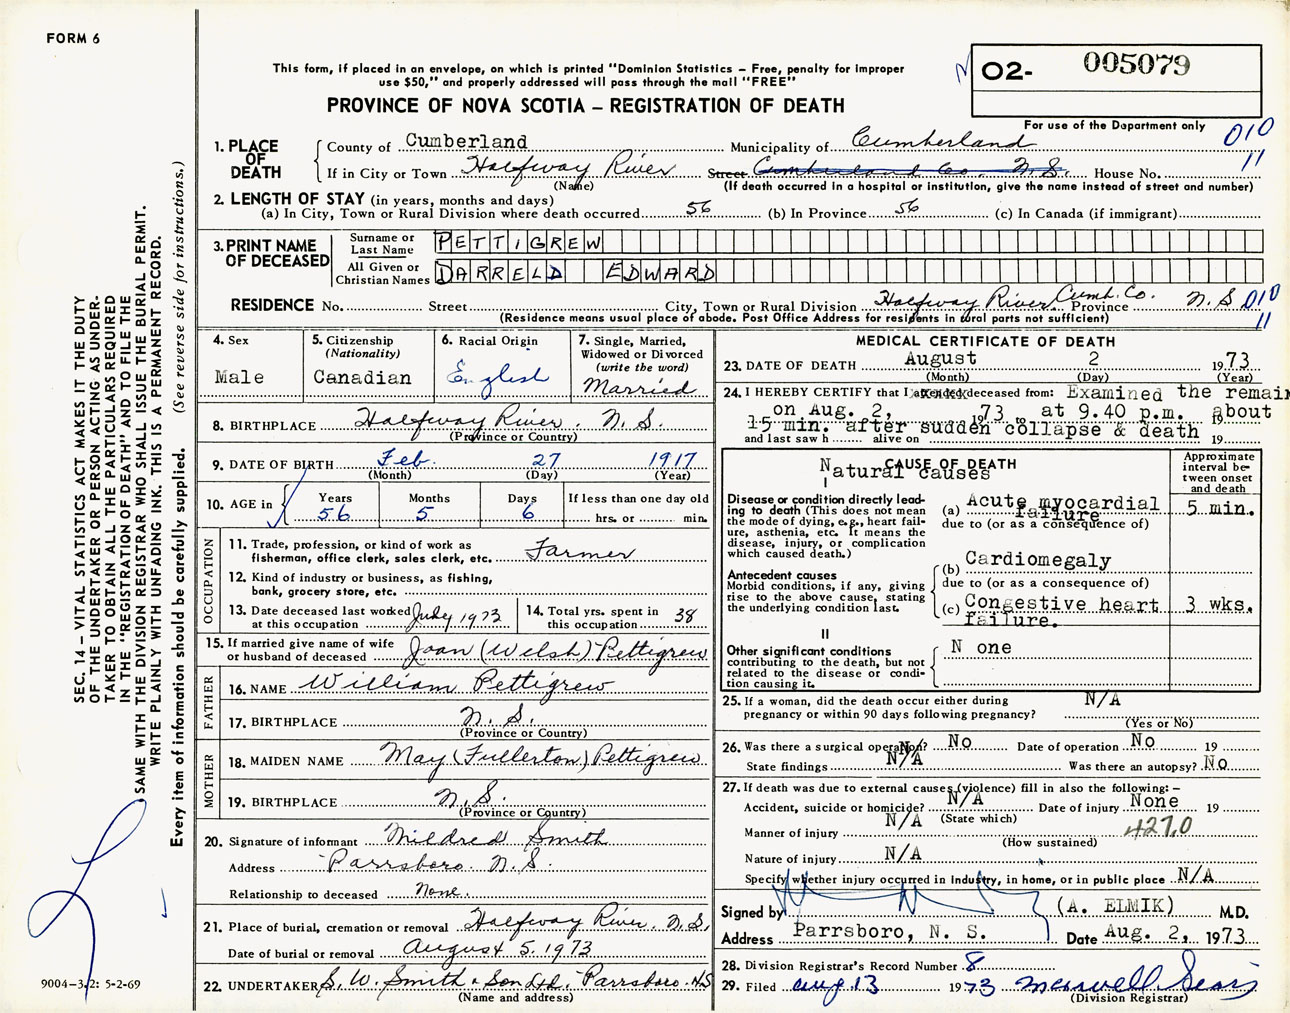 FORM 6
This form, if placed in an envelope, on which is printed "Dominion Statistics – Free, penalty for improper
use $50," and properly addressed will pass through the mail "FREE"
O2- 005079
For use of the Department only
PROVINCE OF NOVA SCOTIA – REGISTRATION OF DEATH
010
11
1. PLACE OF DEATH
County of Cumberland Municipality of Cumberland
If in City or Town Halfway River Street Cumberland Co N.S. House No.
(Name) (If death occurred in a hospital or institution, give the name instead of street and number)
2. LENGTH OF STAY (in years, months and days)
(a) In City, Town or Rural Division where death occurred 56 (b) In Province 56 (c) In Canada (if immigrant)
3. PRINT NAME OF DECEASED
Surname or Last Name PETTIGREW
All Given or Christian Names DARRELD EDWARD
RESIDENCE No. Street City, Town or Rural Division Halfway River Cumb. Co. Province N.S. 010
11
(Residence means usual place of abode. Post Office Address for residents in rural parts not sufficient)
4. Sex
Male
5. Citizenship
(Nationality)
Canadian
6. Racial Origin
English
7. Single, Married,
Widowed or Divorced
(write the word)
Married
8. BIRTHPLACE Halfway River. N.S.
(Province or Country)
9. DATE OF BIRTH Feb. 27 1917
(Month) (Day) (Year)
10. AGE in Years 56 Months 5 Days 6 If less than one day old
hrs. or min.
OCCUPATION
11. Trade, profession, or kind of work as
fisherman, office clerk, sales clerk, etc. Farmer
12. Kind of industry or business, as fishing,
bank, grocery store, etc.
13. Date deceased last worked
at this occupation July 1973
14. Total yrs. spent in
this occupation 38
15. If married give name of wife
or husband of deceased Joan (Welsh) Pettigrew
FATHER
16. NAME William Pettigrew
17. BIRTHPLACE N.S.
(Province or Country)
MOTHER
18. MAIDEN NAME May (Fullerton) Pettigrew
19. BIRTHPLACE N.S.
(Province or Country)
20. Signature of informant Mildred Smith
Address Parrsboro. N.S.
Relationship to deceased None.
21. Place of burial, cremation or removal Halfway River. N.S.
Date of burial or removal August 5. 1973
22. UNDERTAKER S. W. Smith & Son Ltd. Parrsboro. NS
(Name and address)
MEDICAL CERTIFICATE OF DEATH
23. DATE OF DEATH August 2 1973
(Month) (Day) (Year)
24. I HEREBY CERTIFY that I attended deceased from: Examined the remai
on Aug. 2, 1973 at 9.40 p.m. about 19
15 min. after sudden collapse & death
and last saw h alive on 19
CAUSE OF DEATH
Natural causes
Approximate
interval be-
tween onset
and death
I
Disease or condition directly lead-
ing to death (This does not mean
the mode of dying, e.g., heart fail-
ure, asthenia, etc. It means the
disease, injury, or complication
which caused death.)
(a) Acute myocardial
failure 5 min.
due to (or as a consequence of)
Antecedent causes
Morbid conditions, if any, giving
rise to the above cause, stating
the underlying condition last.
(b) Cardiomegaly
due to (or as a consequence of)
(c) Congestive heart
failure. 3 wks.
II
Other significant conditions
contributing to the death, but not
related to the disease or condi-
tion causing it.
N one
25. If a woman, did the death occur either during
pregnancy or within 90 days following pregnancy? N/A
(Yes or No)
26. Was there a surgical operation? N/A No Date of operation No 19
State findings N/A Was there an autopsy? No
27. If death was due to external causes (violence) fill in also the following: –
Accident, suicide or homicide? N/A Date of injury None 19
(State which)
Manner of injury N/A 427.0
(How sustained)
Nature of injury N/A
Specify whether injury occurred in Industry, in home, or in public place N/A
Signed by (A. ELMIK) M.D.
Address Parrsboro, N. S. Date Aug. 2, 1973
28. Division Registrar's Record Number 8
29. Filed Aug 13 1973 Maxwell Sears
(Division Registrar)
SEC. 14 – VITAL STATISTICS ACT MAKES IT THE DUTY
OF THE UNDERTAKER OR PERSON ACTING AS UNDER-
TAKER TO OBTAIN ALL THE PARTICULARS REQUIRED
IN THE "REGISTRATION OF DEATH" AND TO FILE THE
SAME WITH THE DIVISION REGISTRAR WHO SHALL ISSUE THE BURIAL PERMIT.
WRITE PLAINLY WITH UNFADING INK. THIS IS A PERMANENT RECORD.
Every item of information should be carefully supplied. (See reverse side for instructions.)
9004-3.2: 5-2-69